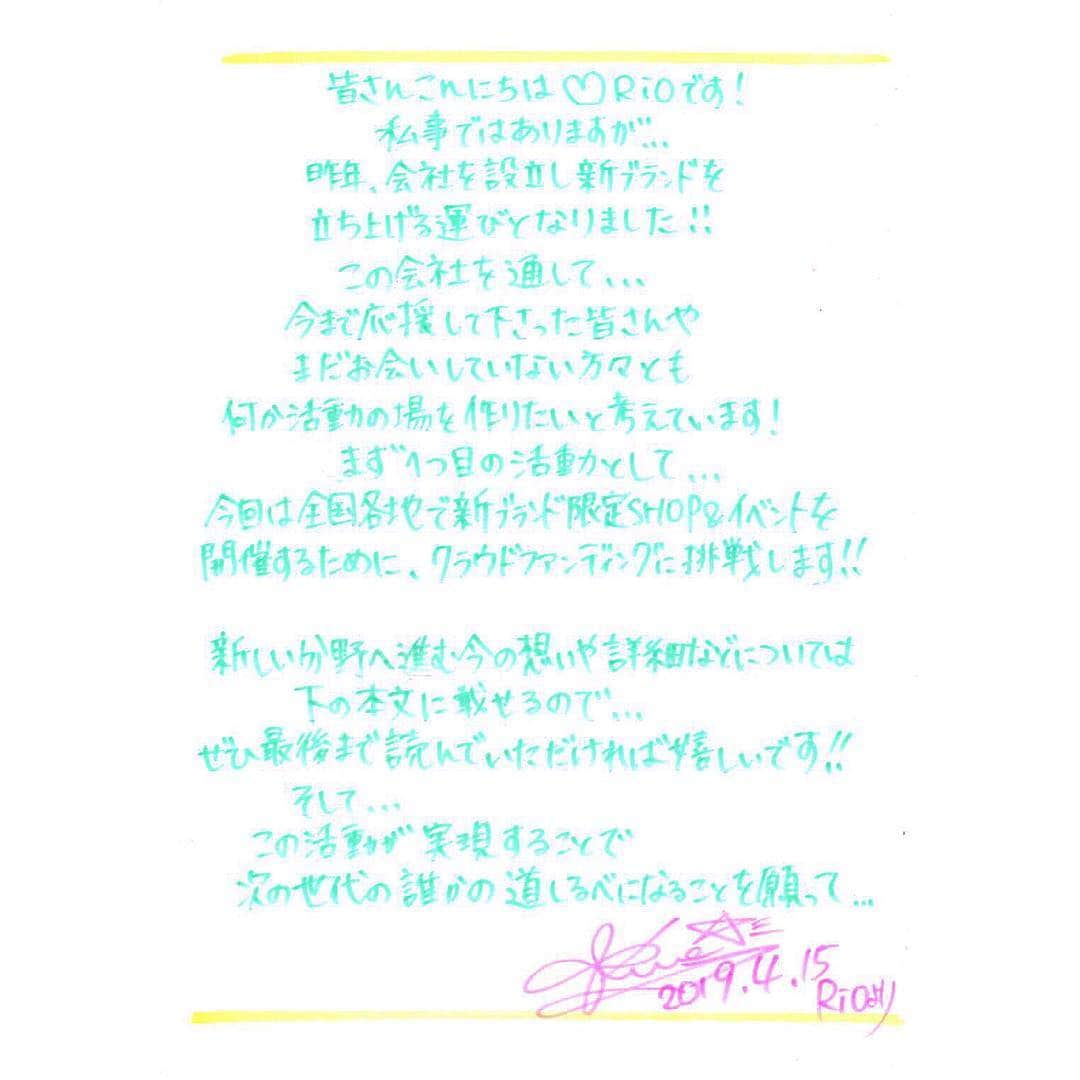 皆さんこんにちは♡Rioです!
私事ではありますが...
昨年、会社を設立し新ブランドを
立ち上げる運びとなりました!!
この会社を通して...
今まで応援して下さった皆さんや
まだお会いしていない方々とも
何か活動の場を作りたいと考えています!
まず1つ目の活動として...
今回は全国各地で新ブランド限定SHOP&イベントを
開催するために、クラウドファンディングに挑戦します!!
新しい分野へ進む今の想いや詳細などについては
下の本文に載せるので...
ぜひ最後まで読んでいただければ嬉しいです!!
そして...
この活動が実現することで
次の世代の誰かの道しるべになることを願って...
2019.4.15
Rioより